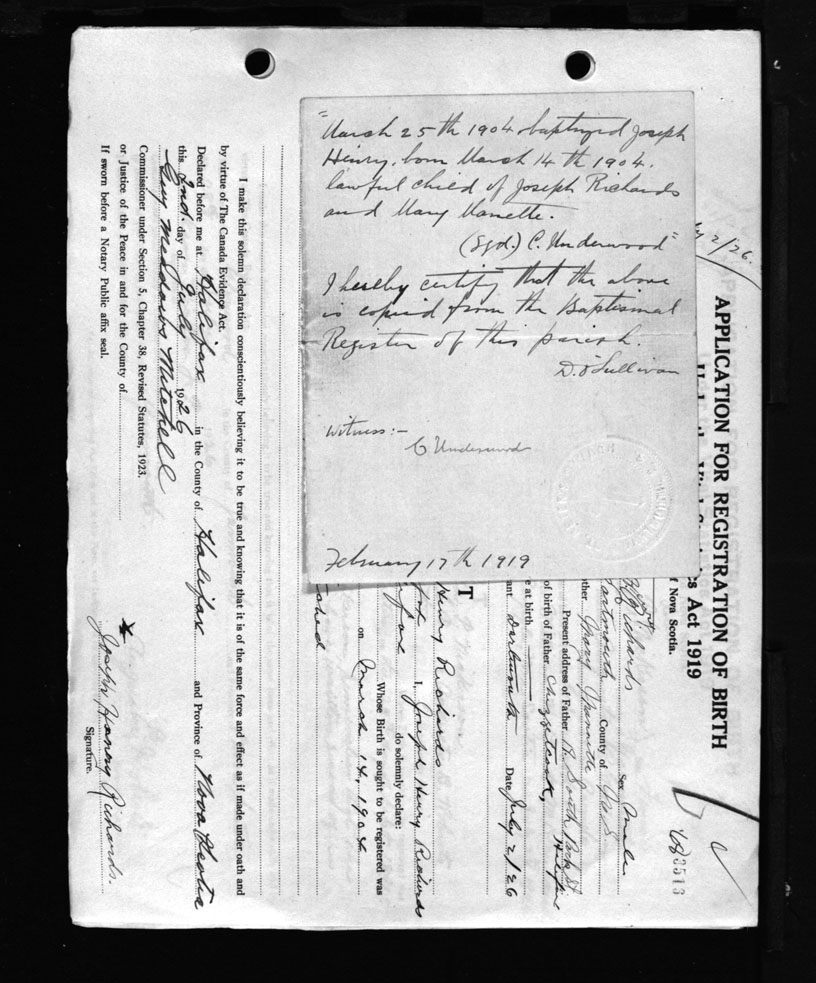 "March 25th 1904 baptized Joseph
Henry, born March 14th 1904.
lawful child of Joseph Richards
and Mary Manette.
(Sgd.) C. Underwood"
I hereby certify that the above
is copied from the Baptismal
Register of this parish.
D. O'Sullivan
Witness:-
C Underwood
February 17th 1919
2/26.
APPLICATION FOR REGISTRATION OF BIRTH
Act 1919
Nova Scotia.
Richards Sex Male
Dartmouth County of
Mary
Present address of Father South Park St
Halifax
of birth of Father Chezzetcook,
e at birth
ant Dartmouth Date July 2/26
3513
T
Henry Richards
I, Joseph Henry Richards
do solemnly declare:
Whose Birth is sought to be registered was
on March 14, 1904
I make this solemn declaration conscientiously believing it to be true and knowing that it is of the same force and effect as if made under oath and
by virtue of The Canada Evidence Act.
Declared before me at Halifax in the County of Halifax and Province of Nova Scotia
this 2nd. day of July 1926
Guy Meadows Mitchell
Joseph Henry Richards.
Signature.
Commissioner under Section 5, Chapter 38, Revised Statutes, 1923.
or Justice of the Peace in and for the County of
If sworn before a Notary Public affix seal.